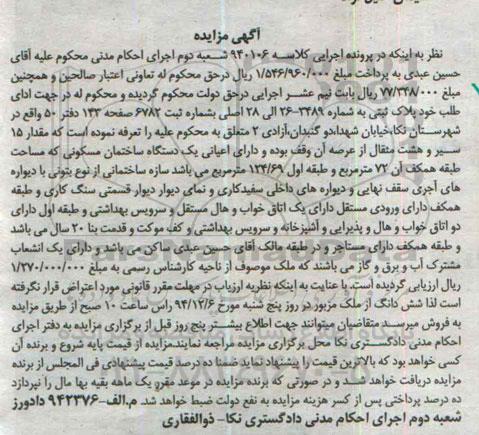 آگهی مزایده
نظر به اینکه در پرونده اجرایی کلاسه ۹۴۰۱۰۶ شعبه دوم اجرای احکام مدنی محکوم علیه آقای
حسین عبدی به پرداخت مبلغ ۱/۵۴۶/۹۶۰/۰۰۰ ریال درحق محکوم له تعاونی اعتبار صالحین و همچنین
مبلغ ۷۷/۳۴۸/۰۰۰ ریال بابت نیم عشر اجرایی درحق دولت محکوم گردیده و محکوم له در جهت ادای
طلب خود پلاک ثبتی به شماره ۳۴۸۹-۲۶ الی ۲۸ اصلی بشماره ثبت ۶۷۸۲ صفحه ۱۴۲ دفتر ۵۰ واقع در
شهرستان نکا،خیابان شهدا،دو گنبدان،آزادی ۲ متعلق به محکوم علیه را تعرفه نموده است که مقدار ۱۵
سیر و هشت مثقال از عرصه آن وقف بوده و دارای اعیانی یک دستگاه ساختمان مسکونی که مساحت
طبقه همکف آن ۷۲ مترمربع و طبقه اول ۱۲۴/۶۹ مترمربع می باشد سازه ساختمانی از نوع بتونی با دیواره
های آجری سقف نهایی و دیواره های داخلی سفیدکاری و نمای دیوار دیوار قسمتی سنگ کاری و طبقه
همکف دارای ورودی مستقل دارای یک اتاق خواب و هال مستقل و سرویس بهداشتی و طبقه اول دارای
دو اتاق خواب و هال و پذیرایی و آشپزخانه و سرویس بهداشتی و کف موکت و قدمت بنا ۲۰ سال می باشد
و طبقه همکف دارای مستاجر و در طبقه مالک آقای حسین عبدی ساکن می باشد و دارای یک انشعاب
مشترک آب و برق و گاز می باشند که ملک موصوف از ناحیه کارشناس رسمی به مبلغ ۱/۲۷۰/۰۰۰/۰۰۰
ریال ارزیابی گردیده است. با عنایت به اینکه نظریه ارزیاب در مهلت مقرر قانونی مورد اعتراض قرار نگرفته
است لذا شش دانگ از ملک مزبور در روز پنج شنبه مورخ ۹۴/۱۲/۶ راس ساعت ۱۰ صبح از طریق مزایده
به فروش میرسد متقاضیان میتوانند جهت اطلاع بیشتر پنج روز قبل از برگزاری مزایده به دفتر اجرای
احکام مدنی دادگستری نکا محل برگزاری مزایده مراجعه نمایند.مزایده از قیمت پایه شروع و برنده آن
کسی خواهد بود که بالاترین قیمت را پیشنهاد نماید ضمنا ده درصد قیمت پیشنهادی فی المجلس از برنده
مزایده دریافت خواهد شد و در صورتی که برنده مزایده در موعد مقرر یک ماهه بقیه بها مال را نپردازد
ده درصد پرداختی پس از کسر هزینه مزایده به نفع دولت ضبط خواهد شد. م.الف-۹۴۲۳۷۶ دادورز
شعبه دوم اجرای احکام مدنی دادگستری نکا- ذوالفقاری